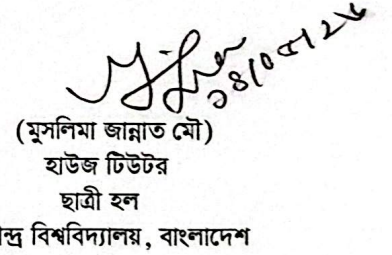 (মুসলিমা জান্নাত মৌ)
হাউজ টিউটর
ছাত্রী হল
ন্দ্র বিশ্ববিদ্যালয়, বাংলাদেশ